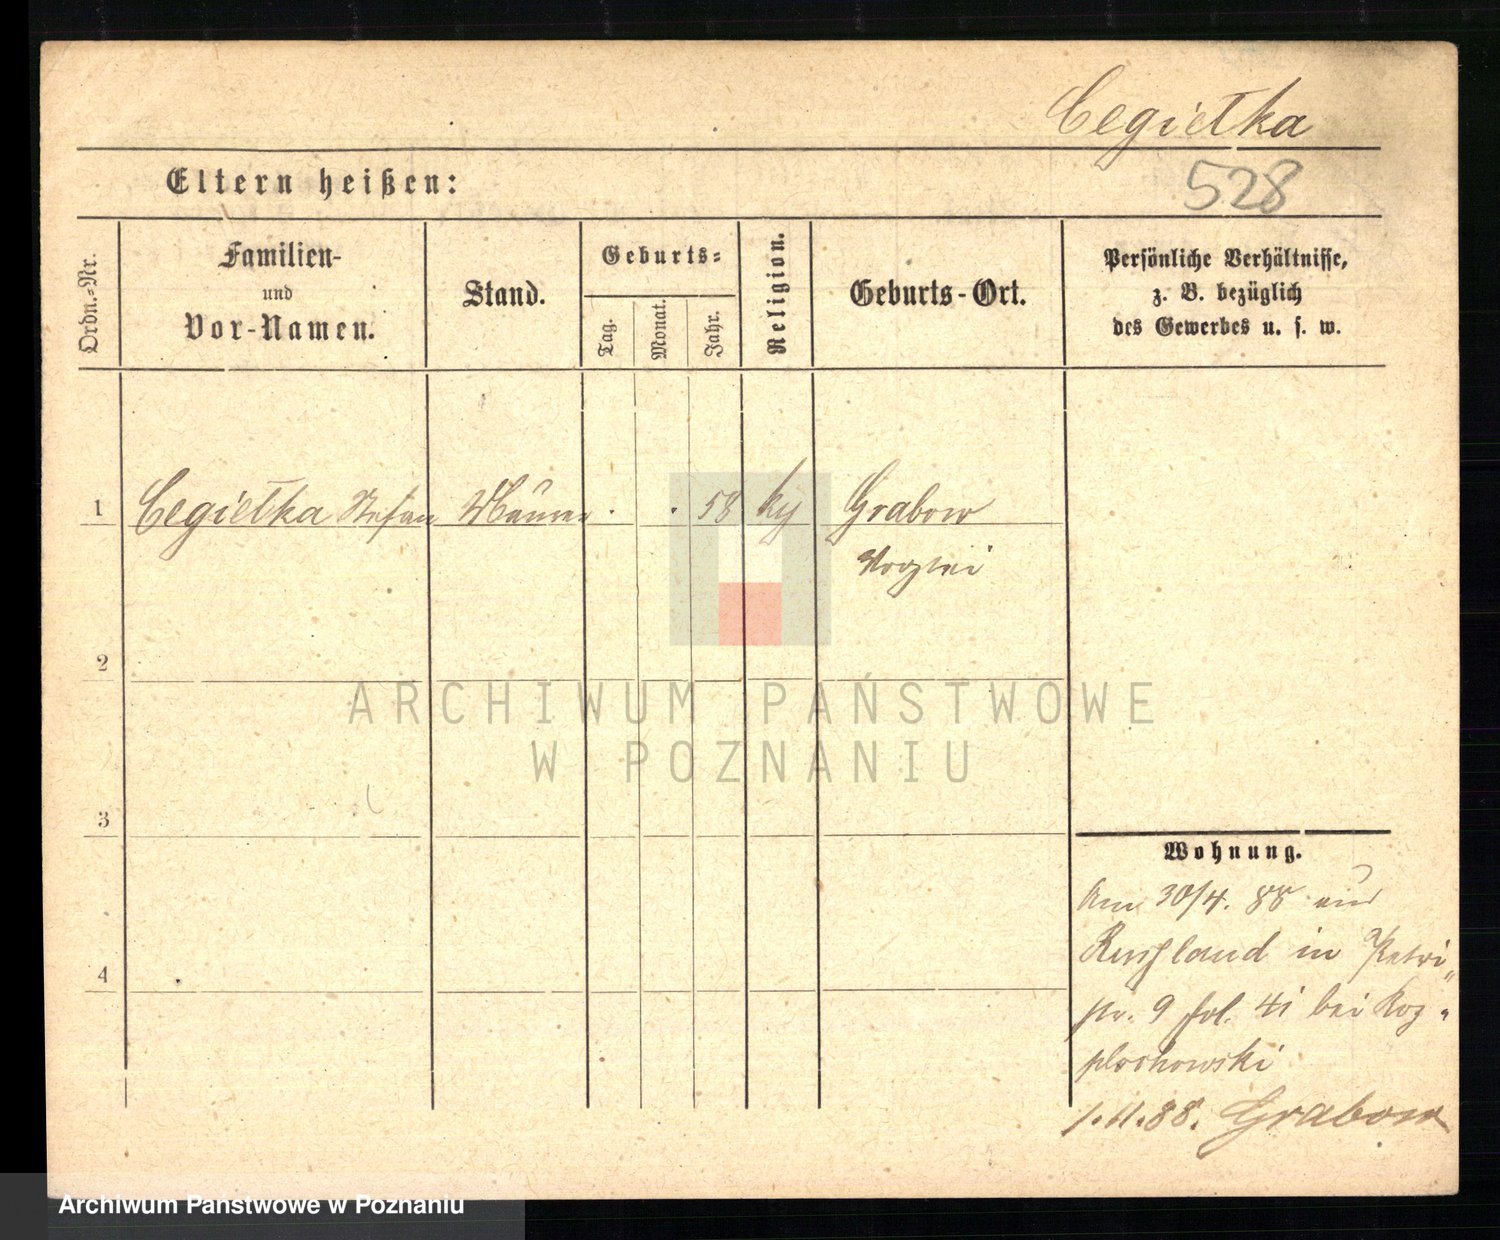 Cegiełka
528
Eltern heißen:
Ordn.-Nr.
Familien-
und
Vor-Namen.
Stand.
Geburts-
Tag.
Monat.
Jahr.
Religion.
Geburts-Ort.
Persönliche Verhältnisse,
z. B. bezüglich
des Gewerbes u. s. w.
1 Cegiełka Stefan Maurer 58 Grabow
2
3
4
ARCHIWUM PAŃSTWOWE
W POZNANIU
Wohnung.
Am 30/4. 88 aus
Russland in Petri
9 fol. 41 bei
1.11.88. Grabow
Archiwum Państwowe w Poznaniu